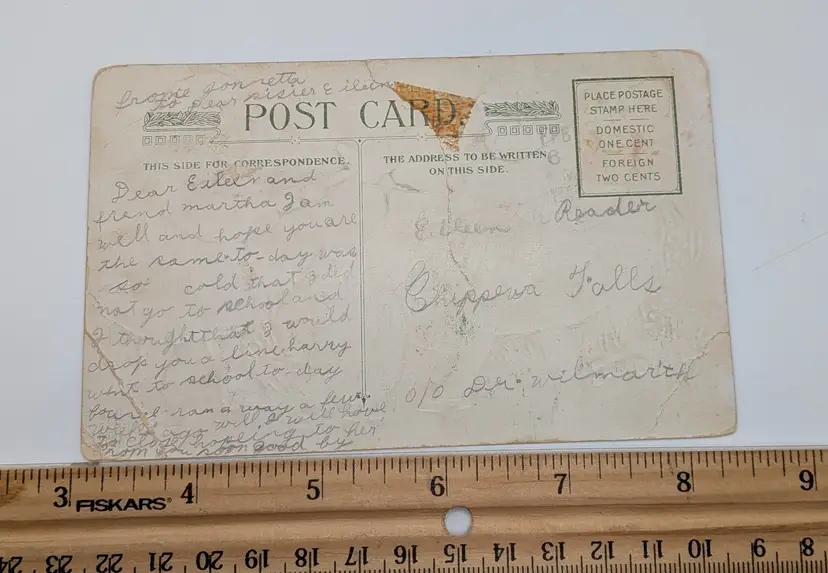 frome jonretta
to Dear sisier & eileen
POST CARD.
PLACE POSTAGE
STAMP HERE
DOMESTIC
ONE CENT
FOREIGN
TWO CENTS
THIS SIDE FOR CORRESPONDENCE.
THE ADDRESS TO BE WRITTEN
ON THIS SIDE.
Dear Eileen and
frend martha I am
well and hope you are
the same to-day was
so cold that I did
not go to school and
I thought that I would
drop you a line harry
went to school to-day
ran a way a few
weeks ago well I will have
to close hopeing to her
from you soon good by
Eileen Reader
Chippewa Falls
o/o Dr. wilmarth
3 4 5 6 7 8 9
FISKARS
24 23 22 21 20 19 18 17 16 15 14 13 12 11 10 9 8